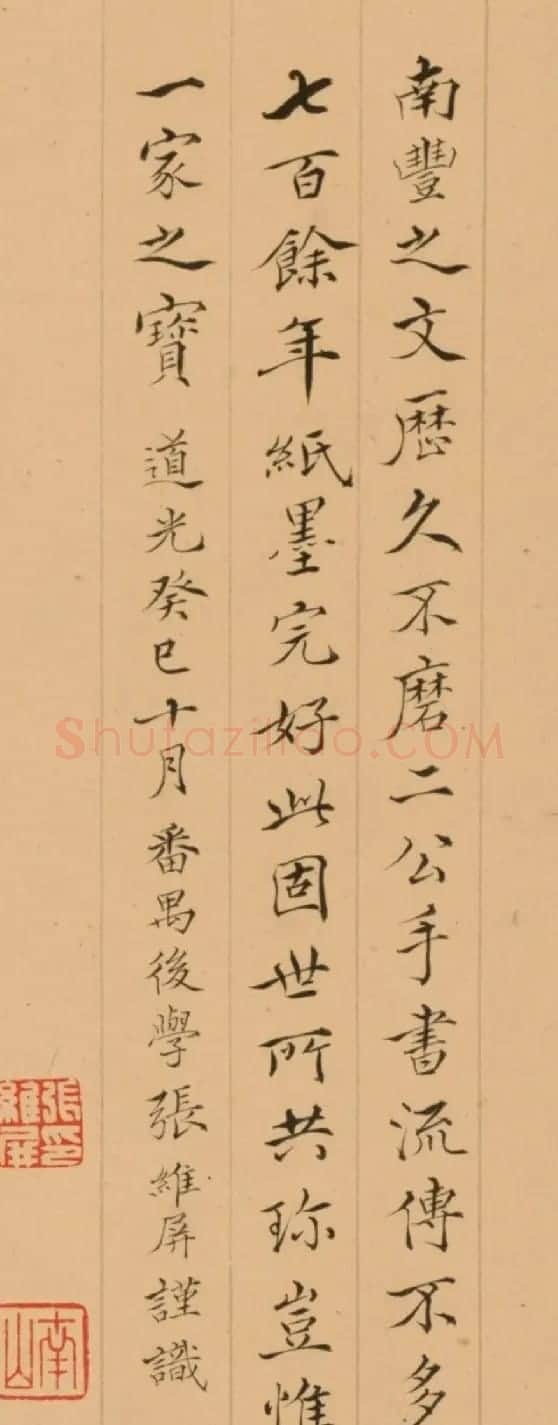 南豐之文歷久不磨二公手書流傳不多
七百餘年紙墨完好此固世所共珎豈惟
一家之寶 道光癸巳十月番禺後學張維屏謹識
張維屏印
南山
Shufaziliao.COM